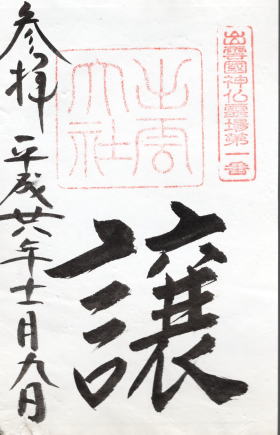 出雲國神仏霊場第一番
出雲
大社
譲
参拝
平成廿六年十一月九日